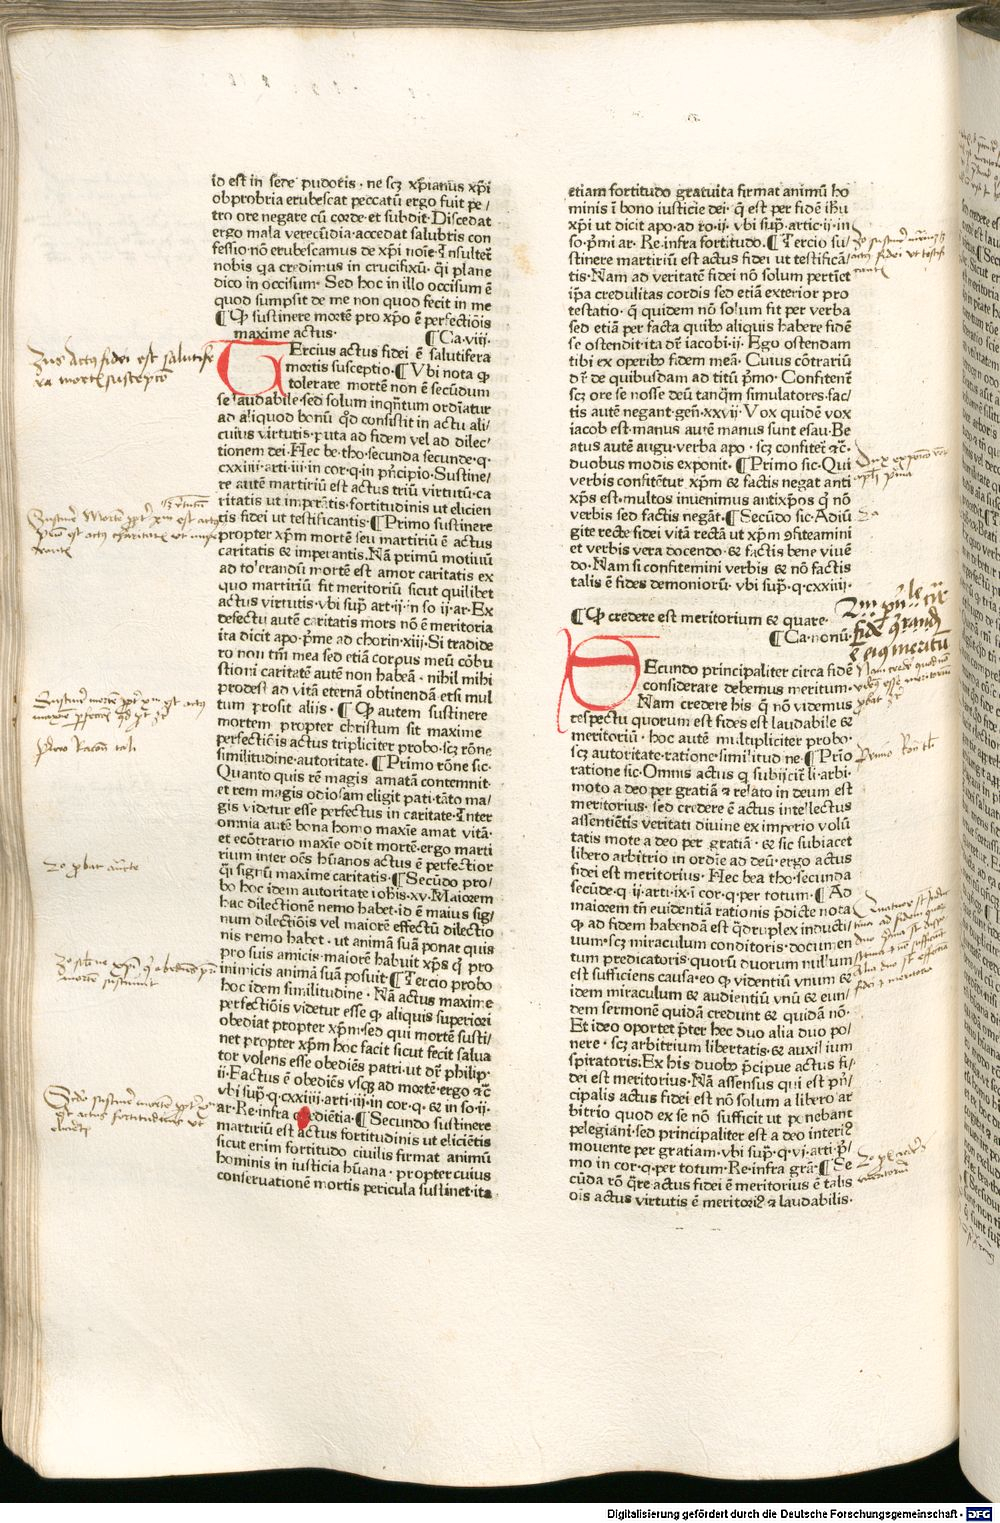 id est in sede pudoris · ne scʒ xp̄ianus xp̄i
obprobria erubescat peccatū ergo fuit pe/
tro ore negare cū corde · et subdit · Discedat
ergo mala verecūdia · accedat salubris con
fessio · nō erubescamus de xp̄i noīe · Insulteт̄
nobis qa credimus in crucifixū · q̄i plane
dico in occisum · Sed hoc in illo occisum ē
quod sumpsit de me non quod fecit in me
¶ Qꝫ sustinere mortē pro xp̄o ē perfectiōis
maxime actus · ¶ Ca · viij ·
TErcius actus fidei ē salutifera
mortis susceptio · ¶ Vbi nota qꝫ
tolerare mortē non ē secūdum
se laudabile · sed solum inqn̄tum ordīatur
ad aliquod bonū qd̄ consistit in actu ali/
cuius virtutis · puta ad fidem vel ad dilec/
tionem dei · Hec be · tho · secunda secunde · q ·
cxxiiij · arti · iij · in cor · q · in pn̄cipio · Sustine/
re autē martiriū est actus triū virtutū · ca
ritatis ut imperātis · fortitudinis ut elicien
tis fidei ut testificantis · ¶ Primo sustinere
propter xp̄m mortē seu martiriū ē actus
caritatis & imperantis · Nā primū motiuū
ad tolerandū mortē est amor caritatis ex
quo martiriū fit meritoriū sicut quilibet
actus virtutis · vbi sup̄ · art · ij · in so · ij · ar · Ex
defectu autē caritatis mors nō ē meritoria
ita dicit apo · p̄me ad chorin · xiij · Si tradide
ro non tm̄ mea sed etiā corpus meū cōbu
stioni caritatē autē non habeā · nihil mihi
prodest ad vitā eternā obtinendā etsi mul
tum prosit alijs · ¶ Qꝫ autem sustinere
mortem propter christum sit maxime
perfectiōis actus tripliciter probo · scʒ rōne
similitudine · autoritate · ¶ Primo rōne sic ·
Quanto quis rē magis amatā contemnit ·
et rem magis odiosam eligit pati · tāto ma/
gis videtur esse perfectus in caritate · Inter
omnia autē bona homo maxīe amat vitā ·
et ecōtrario maxīe odit mortē · ergo marti
rium inter oēs hūanos actus ē perfectior
q̄i signū maxime caritatis · ¶ Secūdo pro/
bo hoc idem autoritate iohīs · xv · Maiorem
hac dilectionē nemo habet · id ē maius sig/
num dilectiōis vel maiorē effectū dilectio
nis nemo habet · ut animā suā ponat quis
pro suis amicis · maiorē habuit xp̄s qꝫ pro
inimicis animā suā posuit · ¶ Tercio probo
hoc idem similitudine · Nā actus maxime
perfectiōis videtur esse qꝫ aliquis superiori
obediat propter xp̄m · sed qui mortē susti/
net propter xp̄m hoc facit sicut fecit salua
tor volens esse obediēs patri · ut dr̄ philip ·
ij · Factus ē obediēs vsqꝫ ad mortē · ergo &c̄
vbi sup̄ · q · cxxiiij · arti · iij · in cor · q · & in so · ij ·
ar · Re · infra obediētia · ¶ Secundo sustinere
martiriū est actus fortitudinis ut eliciētis
sicut enim fortitudo ciuilis firmat animū
hominis in iusticia hūana · propter cuius
conseruationē mortis pericula sustinet · ita
etiam fortitudo gratuita firmat animū ho
minis ī bono iusticie dei · q̄ est per fidē ih̄u
xp̄i ut dicit apo · ad ro · ij · vbi sup̄ · artic · ij · in
so · p̄mi ar · Re · infra fortitudo · ¶ Tercio su/
stinere martiriū est actus fidei ut testificā/
tis · Nam ad veritatē fidei nō solum pertīet
ip̄a credulitas cordis sed etiā exterior pro
testatio · q̄ quidem nō solum fit per verba
sed etiā per facta quibꝫ aliquis habere fidē
se ostendit · ita dr̄ iacobi · ij · Ego ostendam
tibi ex operibꝫ fidem meā · Cuius cōtrariū
dr̄ de quibusdam ad titū p̄mo · Confitenт̄
scʒ ore se nosse deū tanqm̄ simulatores · fac/
tis autē negant · gen̄ · xxvij · Vox quidē vox
iacob est · manus autē manus sunt esau · Be
atus autē augu · verba apo · scʒ confiteт̄ &c̄ ·
duobus modis exponit · ¶ Primo sic · Qui
verbis confitētur xp̄m & factis negat anti
xp̄s est · multos inuenimus antixp̄os q̄ nō
verbis sed factis negāt · ¶ Secūdo sic · Adiū
gite recte fidei vitā rectā ut xp̄m ꝓfiteamini
et verbis vera docendo · & factis bene viuē
do · Nam si confitemini verbis & nō factis
talis ē fides demoniorū · vbi sup̄ · q · cxxiiij ·
¶ Qꝫ credere est meritorium & quare ·
¶ Ca · nonū ·
SEcundo principaliter circa fidē
considerare debemus meritum ·
Nam credere his q̄ nō videmus
respectu quorum est fides est laudabile &
meritoriū · hoc autē multipliciter probo ·
scʒ autoritate · ratione · similitudine · ¶ Prīo
ratione sic · Omnis actus q̄ subijciт̄ li · arbi ·
moto a deo per gratiā & relato in deum est
meritorius · sed credere ē actus intellectus
assentiētis veritati diuine ex imperio volū
tatis mote a deo per gratiā · & sic subiacet
libero arbitrio in ordīe ad deū · ergo actus
fidei est meritorius · Hec bea · tho · secunda
secūde · q · ij · arti · ix · ī cor · q · per totum · ¶ Ad
maiorem tn̄ euidentiā rationis p̄dicte nota
qꝫ ad fidem habendā est qd̄ruplex inducti/
uum · scʒ miraculum conditoris · documen
tum predicatoris · quorū duorum nullum
est sufficiens causa · eo qꝫ videntiū vnum &
idem miraculum & audientiū vnū & eun/
dem sermonē quidā credunt & quidā nō ·
Et ideo oportet p̄ter hec duo alia duo po/
nere · scʒ arbitrium libertatis · & auxilium
spiratoris · Ex his duobꝫ p̄cipue actus fi/
dei est meritorius · Nā assensus qui est pn̄/
cipalis actus fidei est nō solum a libero ar
bitrio quod ex se nō sufficit ut ponebant
pelegiani · sed principaliter est a deo interiꝰ
mouente per gratiam · vbi sup̄ · q · vj · arti · p̄/
mo in cor · q · per totum · Re · infra grā · ¶ Se
cūda rō qr̄e actus fidei ē meritorius ē talis
oīs actus virtutis ē meritoriꝰ & laudabilis ·
Digitalisierung gefördert durch die Deutsche Forschungsgemeinschaft - DFG